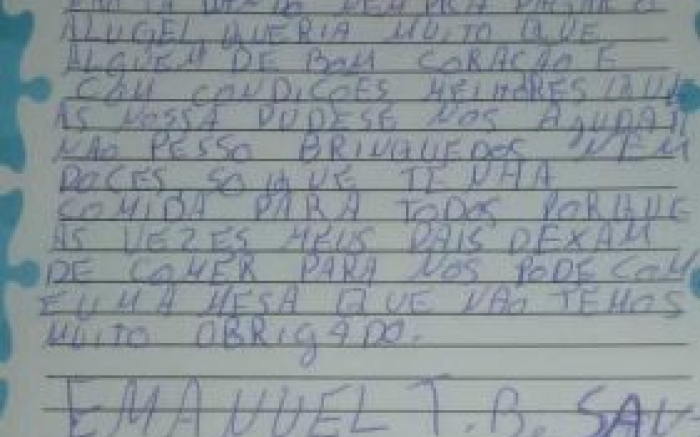 DENDO NEM PRA PAGAR O
ALUGEL, QUERIA MUITO QUE
ALGUEM DE BOM CORAÇÃO E
COM CONDIÇOES MELHORES QUE
AS NOSSA PUDESE NOS AJUDAR
NÃO PESSO BRINQUEDOS NEM
DOCES SO QUE TENHA
COMIDA PARA TODOS PORQUE
AS VEZES MEUS PAIS DEXAM
DE COMER PARA NOS PODE COM
E UMA MESA QUE NÃO TEMOS
MUITO OBRIGADO.
EMANUEL T. B. SAU